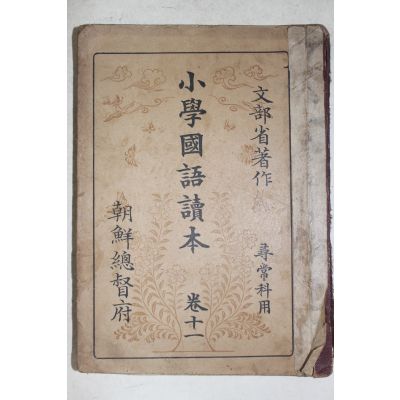 文部省著作
尋常科用
小學國語讀本
卷十一
朝鮮總督府